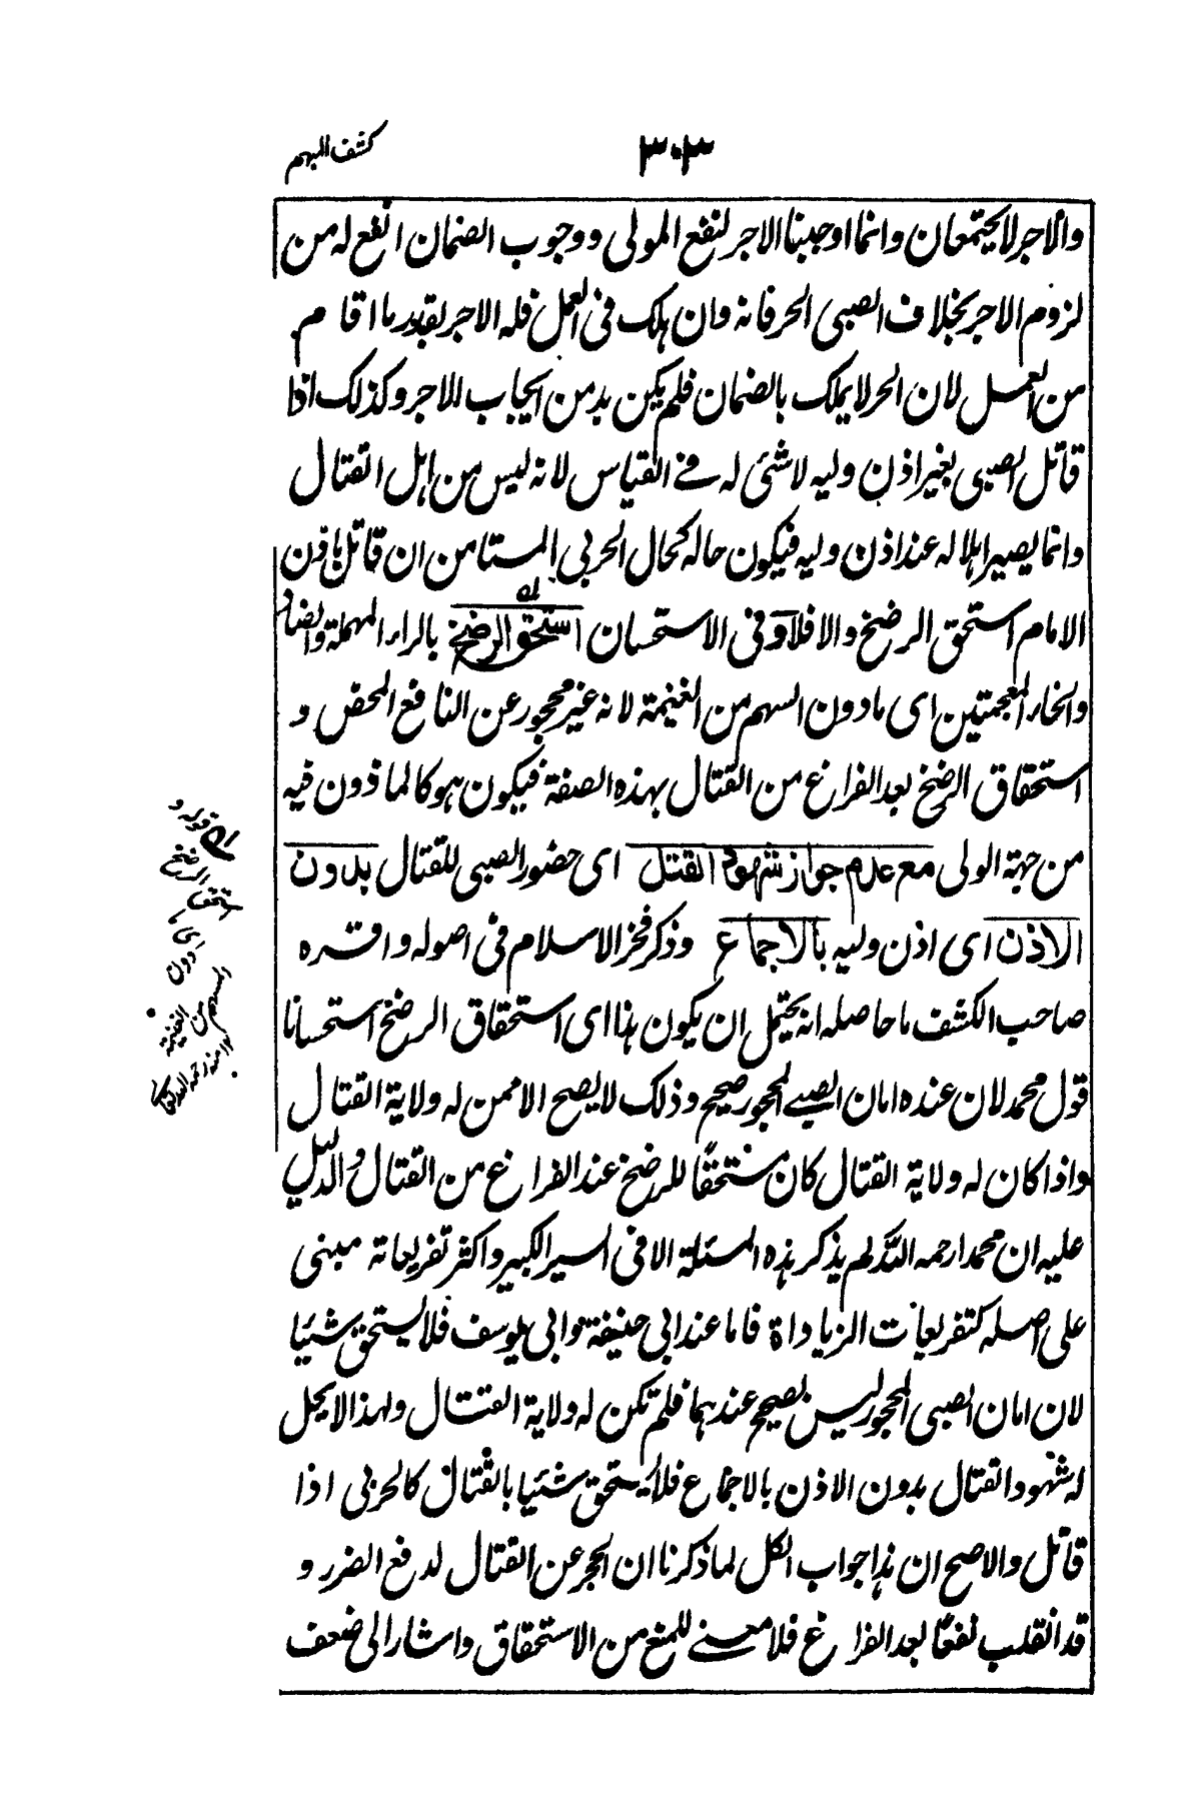 ٣٠٣
كشف المبهم
والاجر لا يجتمعان وانما اوجبنا الاجر لنفع المولى ووجوب الضمان انفع له من
لزوم الاجر بخلاف الصبى الحر فانه وان هلك فى العمل فله الاجر بقدر ما اقام
من العمل لان الحر لا يملك بالضمان فلم يكن بد من ايجاب الاجر وكذلك اذا
قاتل الصبى بغير اذن وليه لا شئ له فى القياس لانه ليس من اهل القتال
وانما يصير اهلا له عند اذن وليه فيكون حاله كحال الحربى المستامن ان قاتل باذن
الامام استحق الرضخ والا فلا وفى الاستحسان استحق الرضخ بالراء المهملة والضاد
والخاء المعجمتين اى ما دون السهم من الغنيمة لانه غير محجور عن النافع المحض و
استحقاق الرضخ بعد الفراغ من القتال بهذه الصفة فيكون هو كالماذون فيه
من جهة الولى مع عدم جواز شهود القتل اى حضور الصبى للقتال بدون
الاذن اى اذن وليه بالاجماع وذكر فخر الاسلام فى اصوله واقره
صاحب الكشف ما حاصله انه يحتمل ان يكون هذا اى استحقاق الرضخ استحسانا
قول محمد لان عنده امان الصبى المحجور صحيح وذلك لا يصح الا ممن له ولاية القتال
واذا كان له ولاية القتال كان مستحقًا للرضخ عند الفراغ من القتال والدليل
عليه ان محمدا رحمه الله لم يذكر هذه المسئلة الا فى السير الكبير واكثر تفريعاته مبنى
على اصله كتفريعات الزيادات فاما عند ابى حنيفة وابى يوسف فلا يستحق شئيا
لان امان الصبى المحجور ليس بصحيح عندهما فلم تكن له ولاية القتال ولهذا لا يحل
له شهود القتال بدون الاذن بالاجماع فلا يستحق شئيا بالقتال كالحربى اذا
قاتل والاصح ان هذا جواب الكل لما ذكرنا ان الحجر عن القتال لدفع الضرر و
قد انقلب نفعًا بعد الفراغ فلا معنى للمنع من الاستحقاق واشار الى ضعف
قوله و
استحق
الرضخ
اى
دون
السهم من
الغنيمة
١٢ منه رحمه الله تعالى